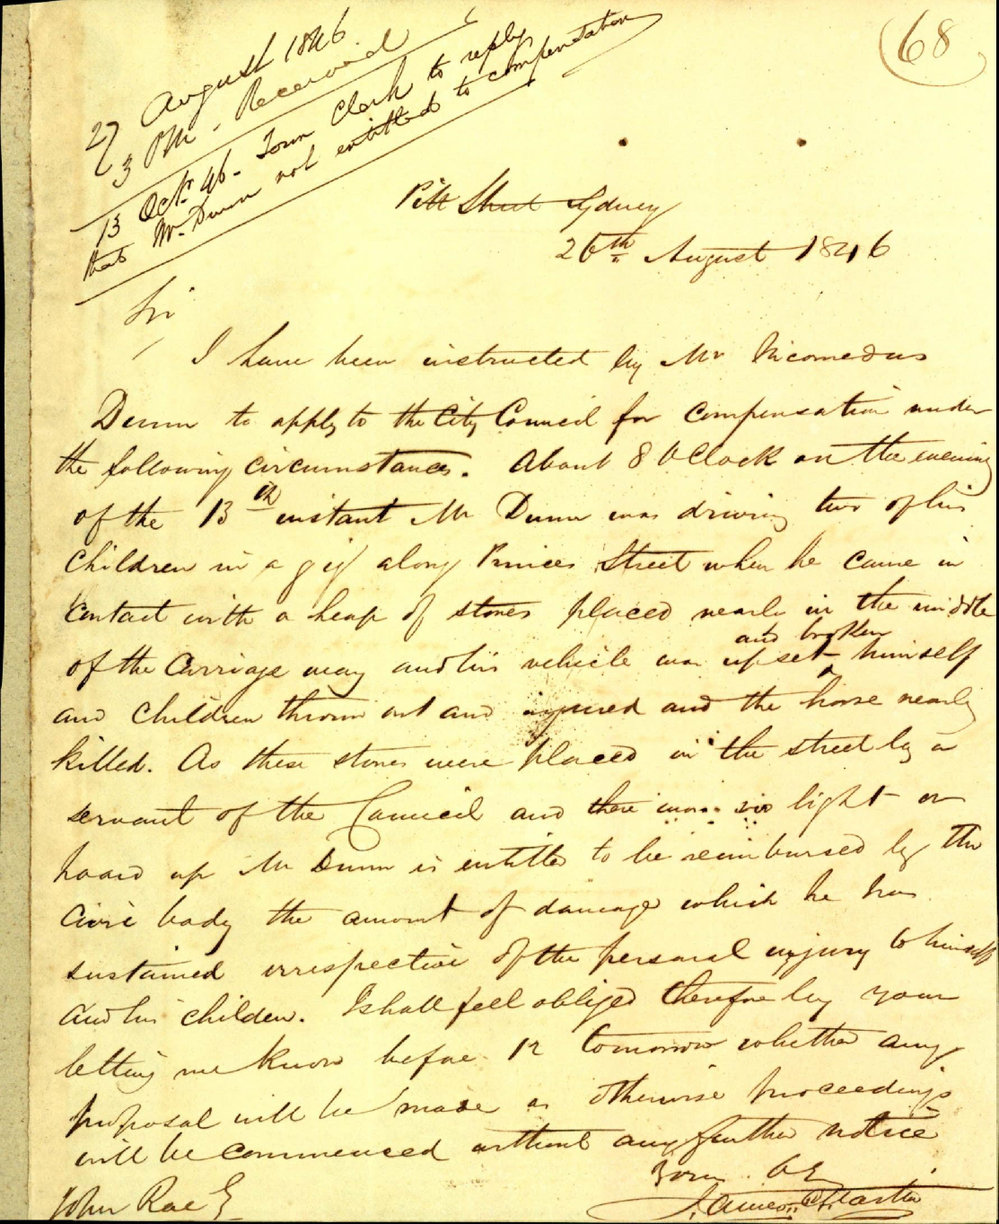 68
27 August 1846
3 PM. Received
13 Oct. 46 - Town Clerk to reply
that Mr. Dunn not entitled to compensation
Pitt Street Sydney
26th August 1846
Sir
I have been instructed by Mr Nicomedus
Dunn to apply to the City Council for compensation under
the following circumstances. About 8 O Clock on the evening
of the 13th instant Mr Dunn was driving two of his
children in a gig along Princes Street when he came in
contact with a heap of stones placed nearly in the middle
of the Carriage way and his vehicle was upset and broken himself
and children thrown out and injured and the horse nearly
killed. As these stones were placed in the street by a
servant of the Council and there was no light or
hoard up Mr Dunn is entitled to be reimbursed by the
Civic body the amount of damage which he has
sustained irrespective of the personal injury to himself
and his children. I shall feel obliged therefore by your
letting me know before 12 tomorrow whether any
proposal will be made as otherwise proceedings
will be commenced without any further notice
Your
John Rae E
James Martin